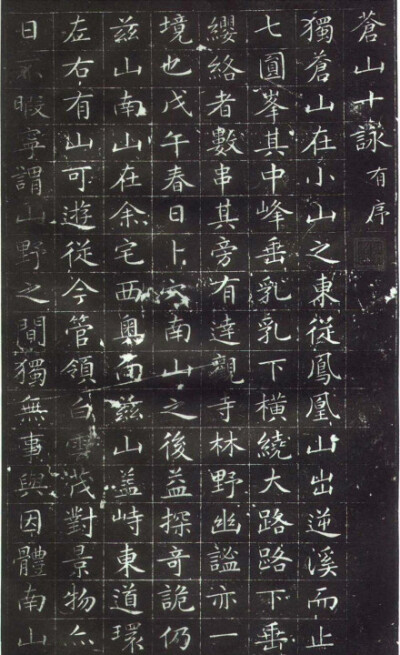 蒼山十詠 有序
獨蒼山在小山之東從鳳凰山出逆溪而止
七圓峯其中峰垂乳乳下橫繞大路路下垂
纓絡者數串其旁有達觀寺林野幽謐亦一
境也戊午春日卜穴南山之後益探奇詭仍
茲山南山在余宅西奥而茲山葢峙東道環
左右有山可遊從今管領白雲茂對景物亦
日不暇寧謂山野之間獨無事與因體南山